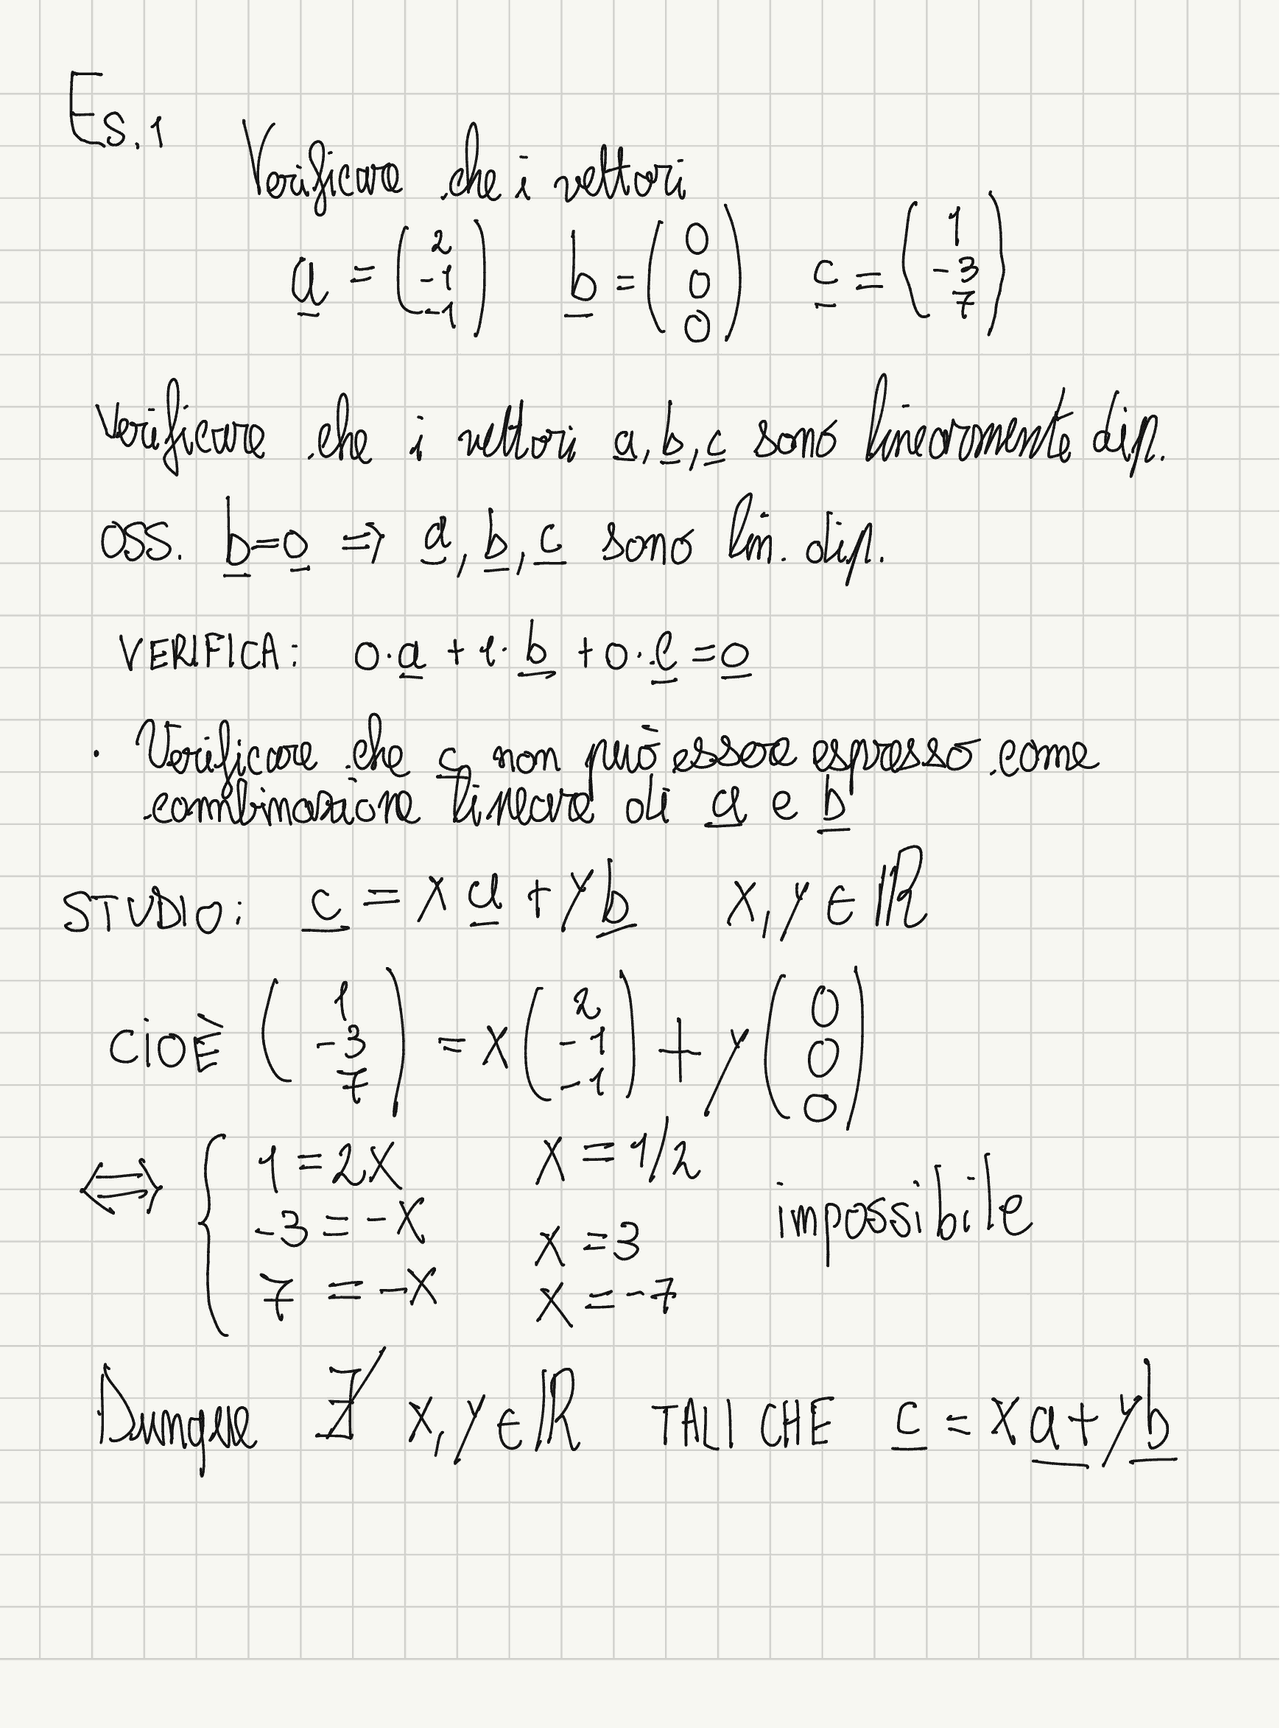 Es.1
Verificare che i vettori
a = (2 -1 -1) b = (0 0 0) c = (1 -3 7)
Verificare che i vettori a, b, c sono linearmente dip.
OSS. b=0 ⇒ a, b, c sono lin. dip.
VERIFICA: 0·a + 1·b + 0·c = 0
· Verificare che c non può essere espresso come
combinazione lineare di a e b
STUDIO: c = x a + y b x, y ∈ ℝ
CIOÈ (1 -3 7) = x (2 -1 -1) + y (0 0 0)
⟺ { 1 = 2x x = 1/2
-3 = -x x = 3 impossibile
7 = -x x = -7
Dunque ∄ x, y ∈ ℝ TALI CHE c = x a + y b